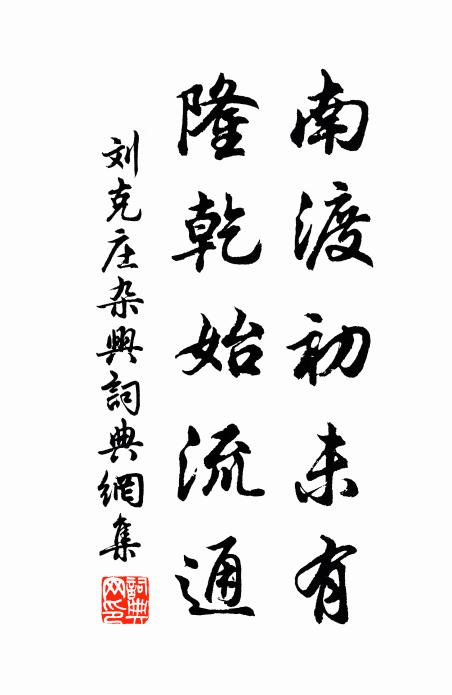 南渡初未有
隆乾始流通
刘克庄杂興詞典網集
詞典网印